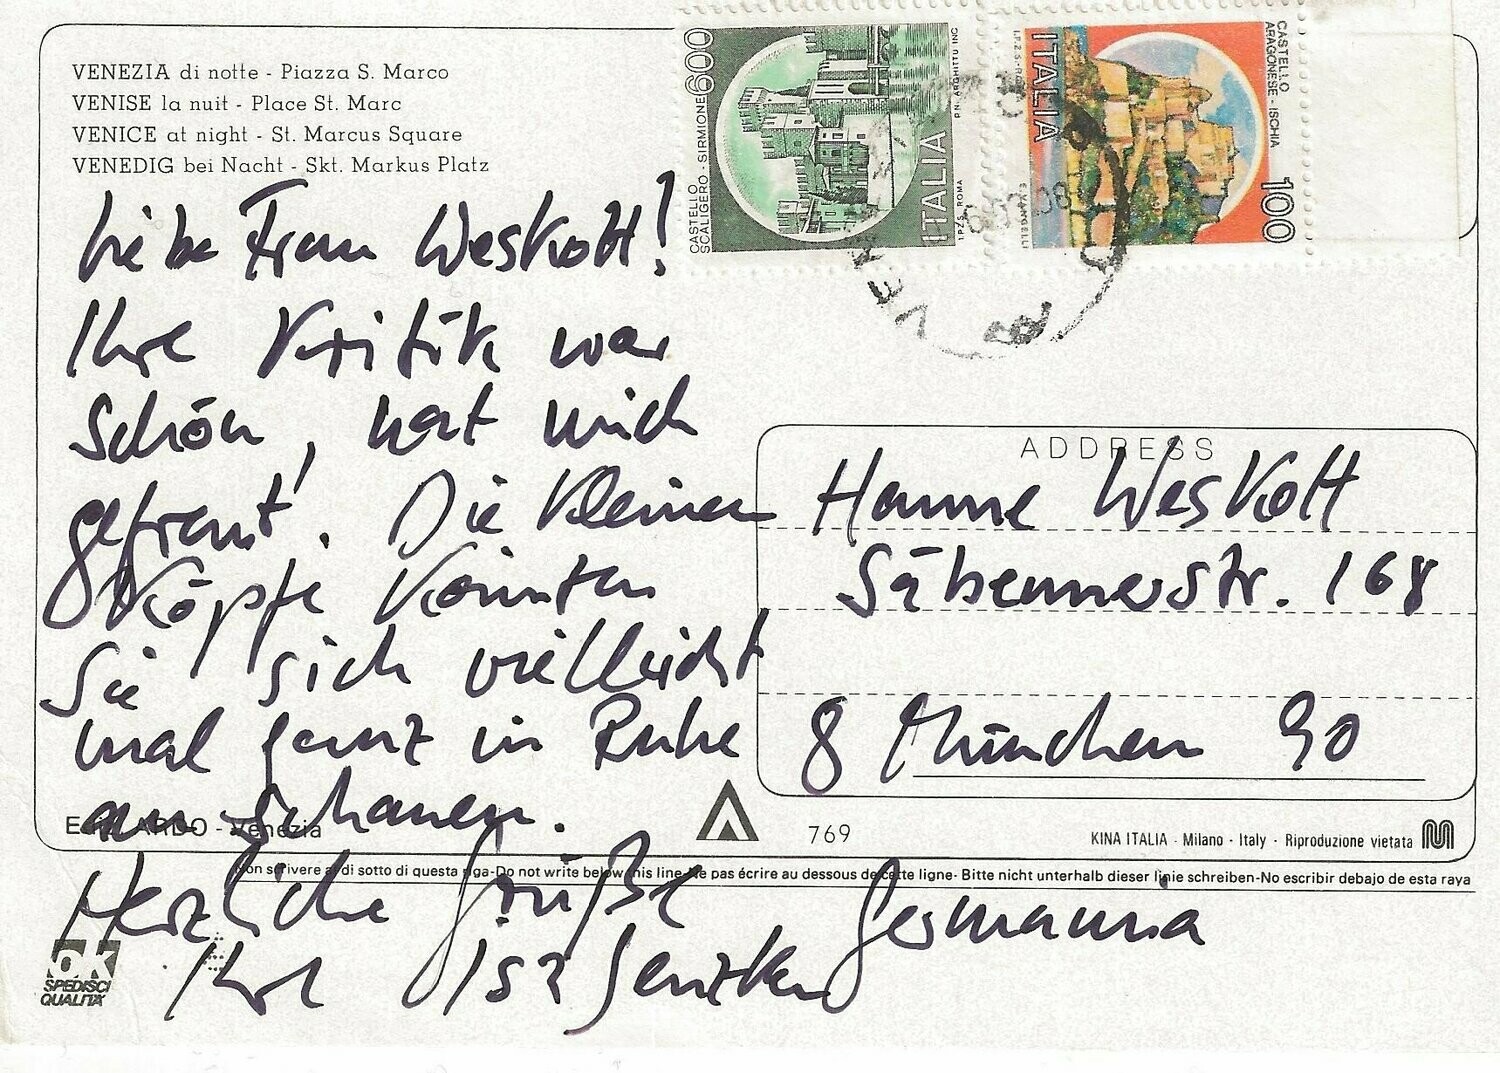 VENEZIA di notte - Piazza S. Marco
VENISE la nuit - Place St. Marc
VENICE at night - St. Marcus Square
VENEDIG bei Nacht - Skt. Markus Platz
CASTELLO
SCALIGERO - SIRMIONE 600
ITALIA
I.P.Z.S. ROMA
P.N. ARGHITTU INC
CASTELLO
ARAGONESE - ISCHIA
100
ITALIA
I.P.Z.S. - ROMA
E. VANGELLI
Liebe Frau Weskott!
Ihre Kritik war
schön, hat mich
gefreut! Die kleinen
Köpfe könnten
Sie sich vielleicht
mal ganz in Ruhe
anschauen.
Herzliche Grüße
Ihre Isa Genzken
Germania
ADDRESS
Hanne Weskott
Säbenerstr. 168
8 München 90
ARDO - Venezia
769
KINA ITALIA - Milano - Italy - Riproduzione vietata
Non scrivere al di sotto di questa riga-Do not write below this line-Ne pas écrire au dessous de cette ligne- Bitte nicht unterhalb dieser linie schreiben-No escribir debajo de esta raya
ok
SPEDISCI
QUALITÀ